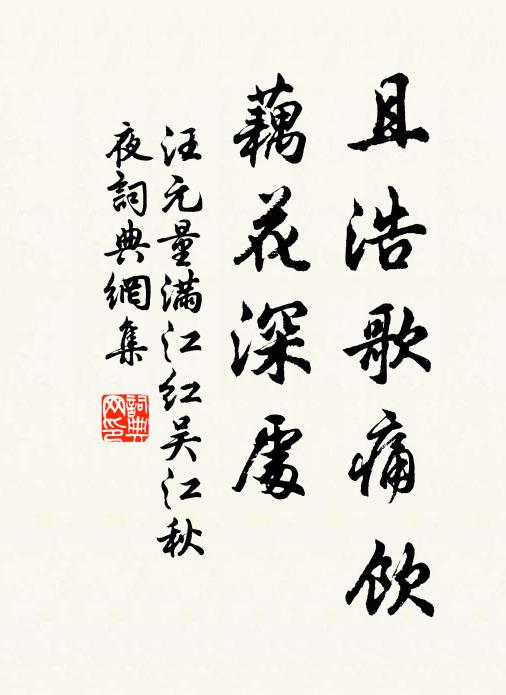 且浩歌痛飲
藕花深處
汪元量满江红吴江秋
夜詞典網集
詞典网印